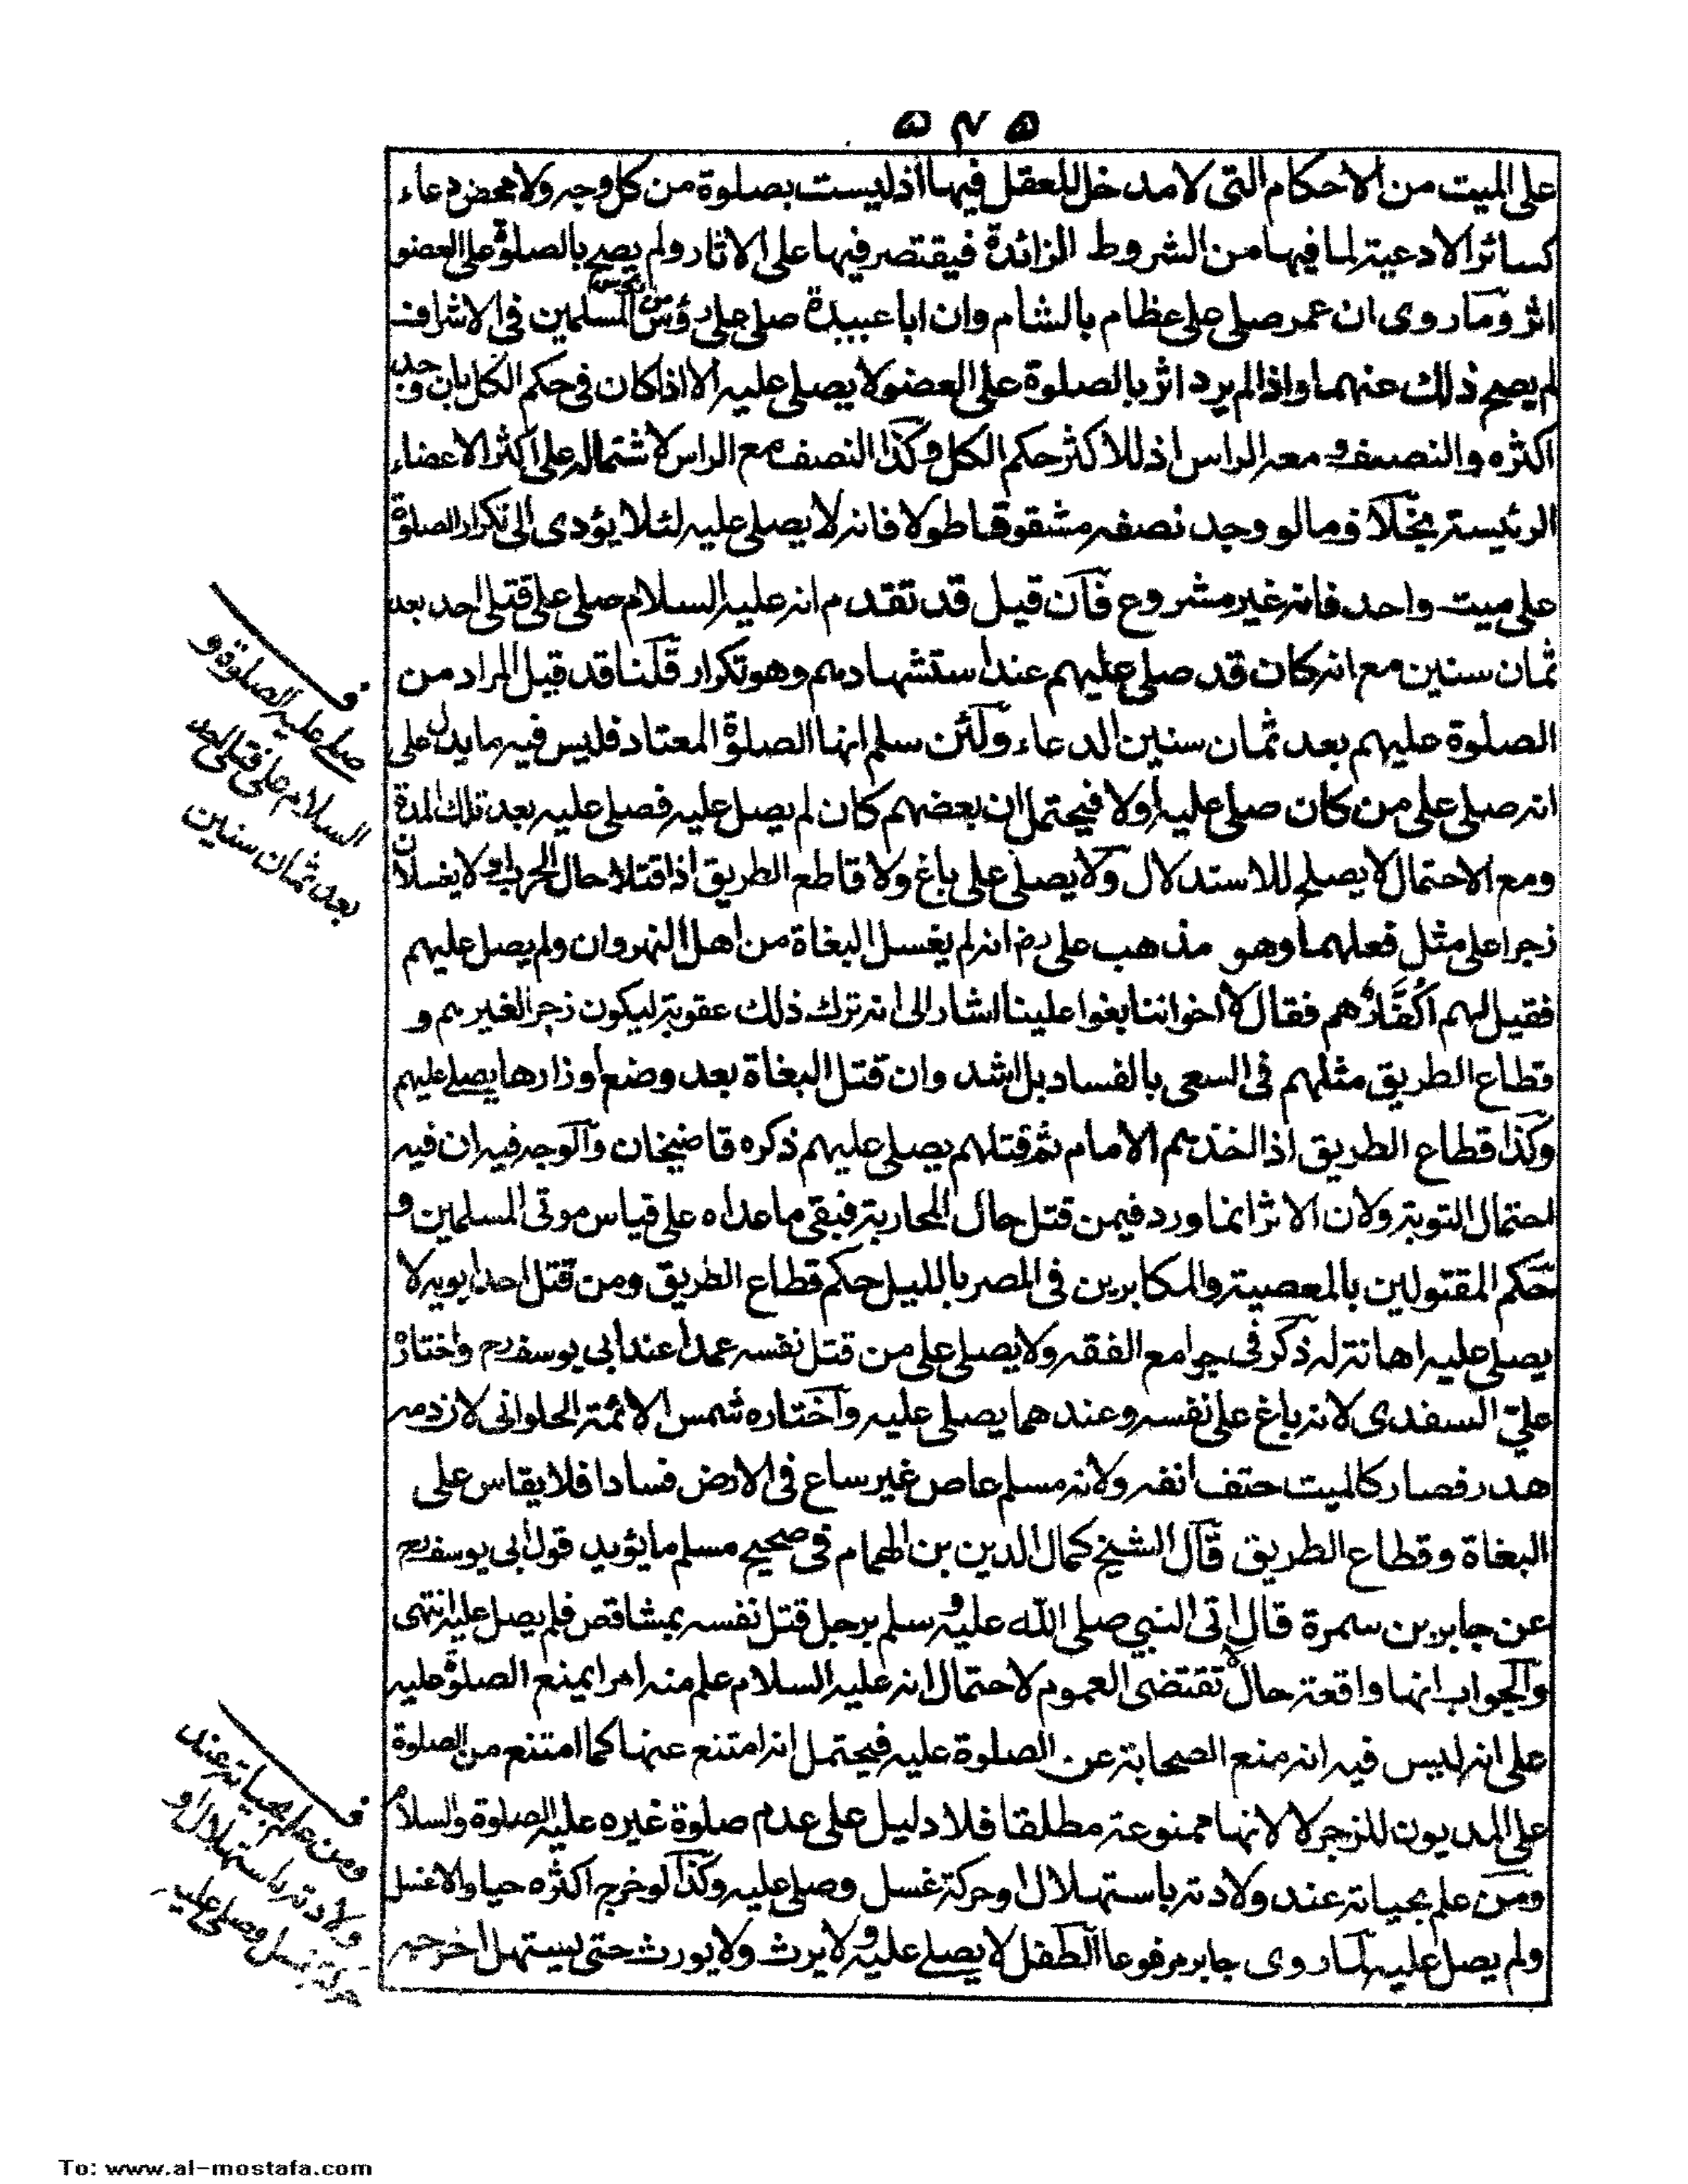 ٥٧٥
على الميت من الاحكام التى لا مدخل للعقل فيها اذ ليست بصلوة من كل وجه ولا محض دعاء
كسائر الادعية لما فيها من الشروط الزائدة فيقتصر فيها على الاثار ولم يصح بالصلوة على العضو
اثر وما روى ان عمر صلى على عظام بالشام وان ابا عبيدة صلى على رؤس المسلمين فى الاشراف
لم يصح ذلك عنهما واذا لم يرد اثر بالصلوة على العضو لا يصلى عليه الا اذا كان فى حكم الكل بان وجد
اكثره والنصف و معه الراس اذ للاكثر حكم الكل وكذا النصف مع الراس لاشتماله على اكثر الاعضاء
الرئيسة بخلاف ما لو وجد نصفه مشقوقا طولا فانه لا يصلى عليه لئلا يؤدى الى تكرار الصلوة
على ميت واحد فانه غير مشروع فان قيل قد تقدم انه عليه السلام صلى على قتلى احد بعد
ثمان سنين مع انه كان قد صلى عليهم عند استشهادهم وهو تكرار قلنا قد قيل المراد من
الصلوة عليهم بعد ثمان سنين الدعاء ولئن سلم انها الصلوة المعتاد فليس فيه ما يدل على
انه صلى على من كان صلى عليه اولا فيحتمل ان بعضهم كان لم يصل عليه فصلى عليه بعد تلك المدة
ومع الاحتمال لا يصلح للاستدلال ولا يصلى على باغ ولا قاطع الطريق اذا قتلا حال الحراب ولا يغسلان
زجرا على مثل فعلهما وهو مذهب على رض انه لم يغسل البغاة من اهل النهروان ولم يصل عليهم
فقيل لهم اَكُفَّارٌ هم فقال لا اخواننا بغوا علينا اشار الى انه ترك ذلك عقوبة ليكون زجرا لغيرهم و
قطاع الطريق مثلهم فى السعى بالفساد بل اشد وان قتل البغاة بعد وضع اوزارها يصلى عليهم
وكذا قطاع الطريق اذا اخذهم الامام ثم قتلهم يصلى عليهم ذكره قاضيخان والوجه فيه ان فيه
احتمال التوبة ولان الاثر انما ورد فيمن قتل حال المحاربة فبقى ما عداه على قياس موتى المسلمين و
حكم المقتولين بالمعصية والمكابرين فى المصر بالليل حكم قطاع الطريق ومن قتل احد ابويه لا
يصلى عليه اهانة له ذكر فى جوامع الفقه ولا يصلى على من قتل نفسه عمدا عند ابى يوسف رح واختاره
علىّ السغدى لانه باغ على نفسه وعندهما يصلى عليه واختاره شمس الائمة الحلوانى لان دمه
هدر فصار كالميت حتف انفه ولانه مسلم عاص غير ساع فى الارض فسادا فلا يقاس على
البغاة وقطاع الطريق قال الشيخ كمال الدين بن الهمام فى صحيح مسلم ما يؤيد قول ابى يوسف رح
عن جابر بن سمرة قال اتى النبي صلى الله عليه وسلم برجل قتل نفسه بمشاقص فلم يصل عليه انتهى
والجواب انها واقعة حال لا تقتضى العموم لاحتمال انه عليه السلام علم منه امرا يمنع الصلوة عليه
على انه ليس فيه انه منع الصحابة عن الصلوة عليه فيحتمل انه امتنع عنها كما امتنع من الصلوة
على المديون للزجر لا لانها ممنوعة مطلقا فلا دليل على عدم صلوة غيره عليه الصلوة والسلام
ومن علم بحياته عند ولادته باستهلال او حركة غسل وصلى عليه وكذا لو خرج اكثره حيا والا غسل
ولم يصل عليه لما روى جابر مرفوعا الطفل لا يصلى عليه ولا يرث ولا يورث حتى يستهل اخرجه
ف
صلى عليه الصلوة و
السلام على قتلى احد
بعد ثمان سنين
ف
ومن علم بحياته عند
ولادته باستهلال او
حركة غسل وصلى عليه
To: www.al-mostafa.com